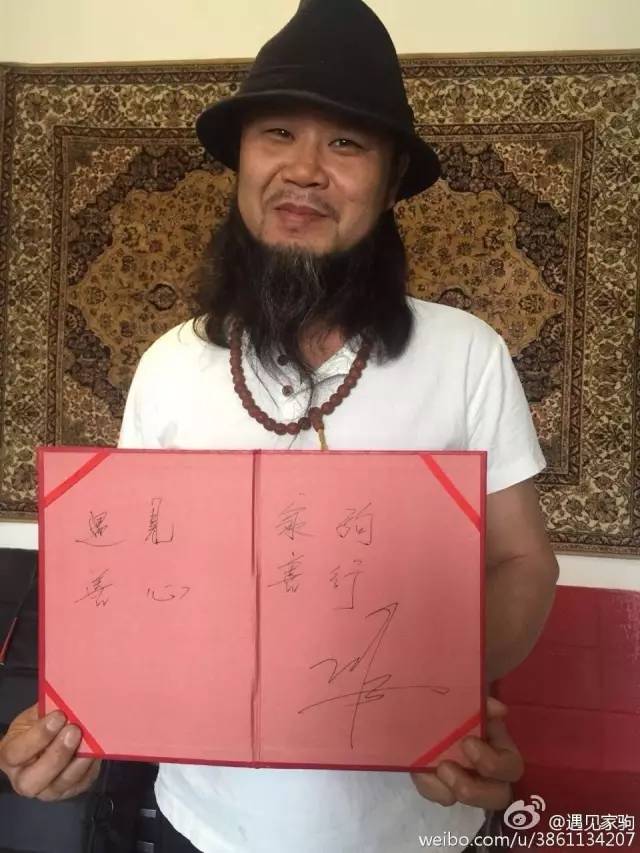 遇見 家驹
善心 善行
@遇见家驹
weibo.com/u/3861134207